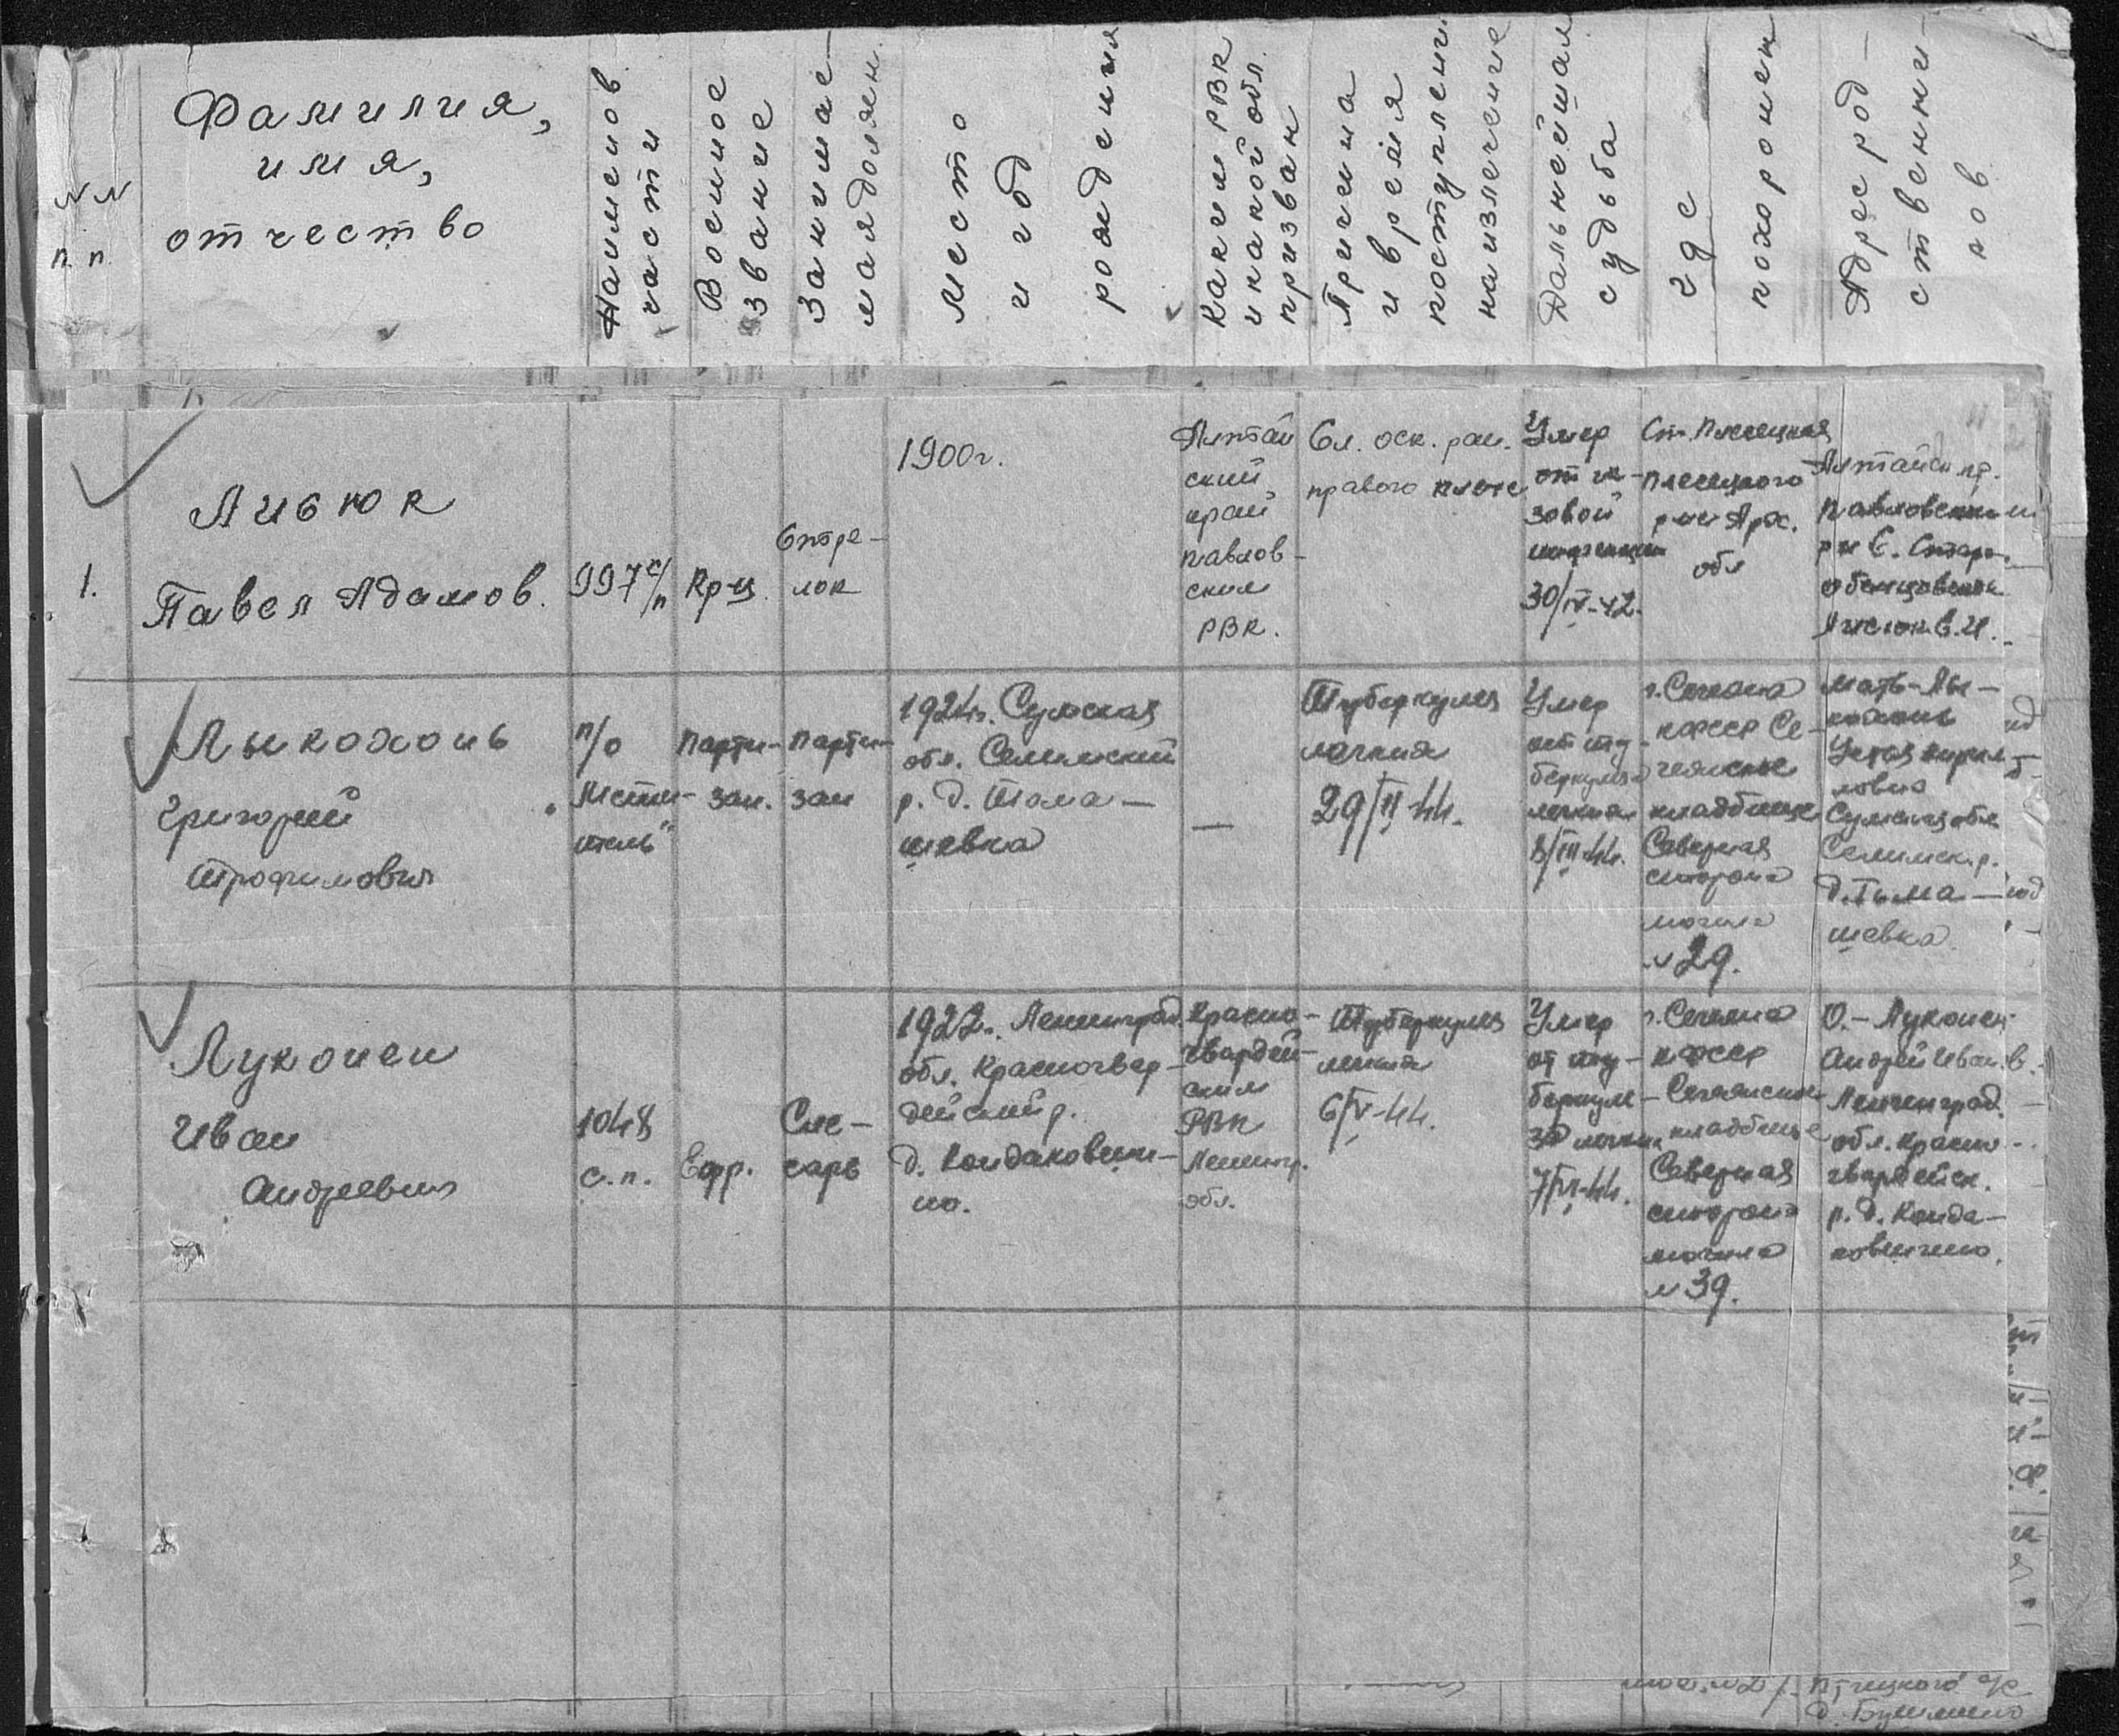 NN
п.п.
Фамилия,
имя,
отчество
Наименов
части
Военное
звание
Занимае-
мая должн.
Место
и год
рождения
Каким РВК
и какой обл.
призван
Причина
и время
поступлен.
на излечение
Дальнейшая
судьба
где
похоронен
Адрес род-
ственни-
ков
1.
Лисюк
Павел Адамов.
997 с/п
Кр-ц.
Стре-
лок
1900г.
Алтай
ский
край
павлов-
ским
РВК.
Сл. оск. ран.
правого плеча
Умер
от га-
зовой
инфекции
30/IV-42.
Ст. Плесецкая
Плесецкого
р-на Арх.
обл
Алтайск кр.
Павловский
р-н С. Старо-
обинцовская
Лисюк Е.И.
Лыкохонь
Григорий
Трофимович
п/о
Мсти-
тель"
Парти-
зан.
Парти-
зан
1924г. Сумская
обл. Селимский
р. д. Тома-
шевка
—
Туберкулез
легких
29/II-44.
Умер
от ту-
беркулеза
легких
8/III-44.
г. Сегежа
КФССР Се-
гежское
кладбище
Северная
сторона
могила
N 29.
Мать-Лы-
кохонь
Сумская обл.
Селимск. р.
д. Тыма-
шевка.
Луконен
Иван
Андреевич
1048
с.п.
Ефр.
Сле-
сарь
1922г. Ленинград.
обл. Красногвар-
дейский р.
д. Кондаковши-
но.
Красно-
гвардей-
ским
РВК
Ленингр.
обл.
Туберкулез
легких
6/V-44.
Умер
от ту-
беркуле-
за легких
7/VI-44.
г. Сегежа
КФССР
Сегежское
кладбище
Северная
сторона
могила
N 39.
О.-Луконен
Андрей Иван.
Ленинград.
обл. красно-
гвардейск.
р. д. Конда-
ковшино.